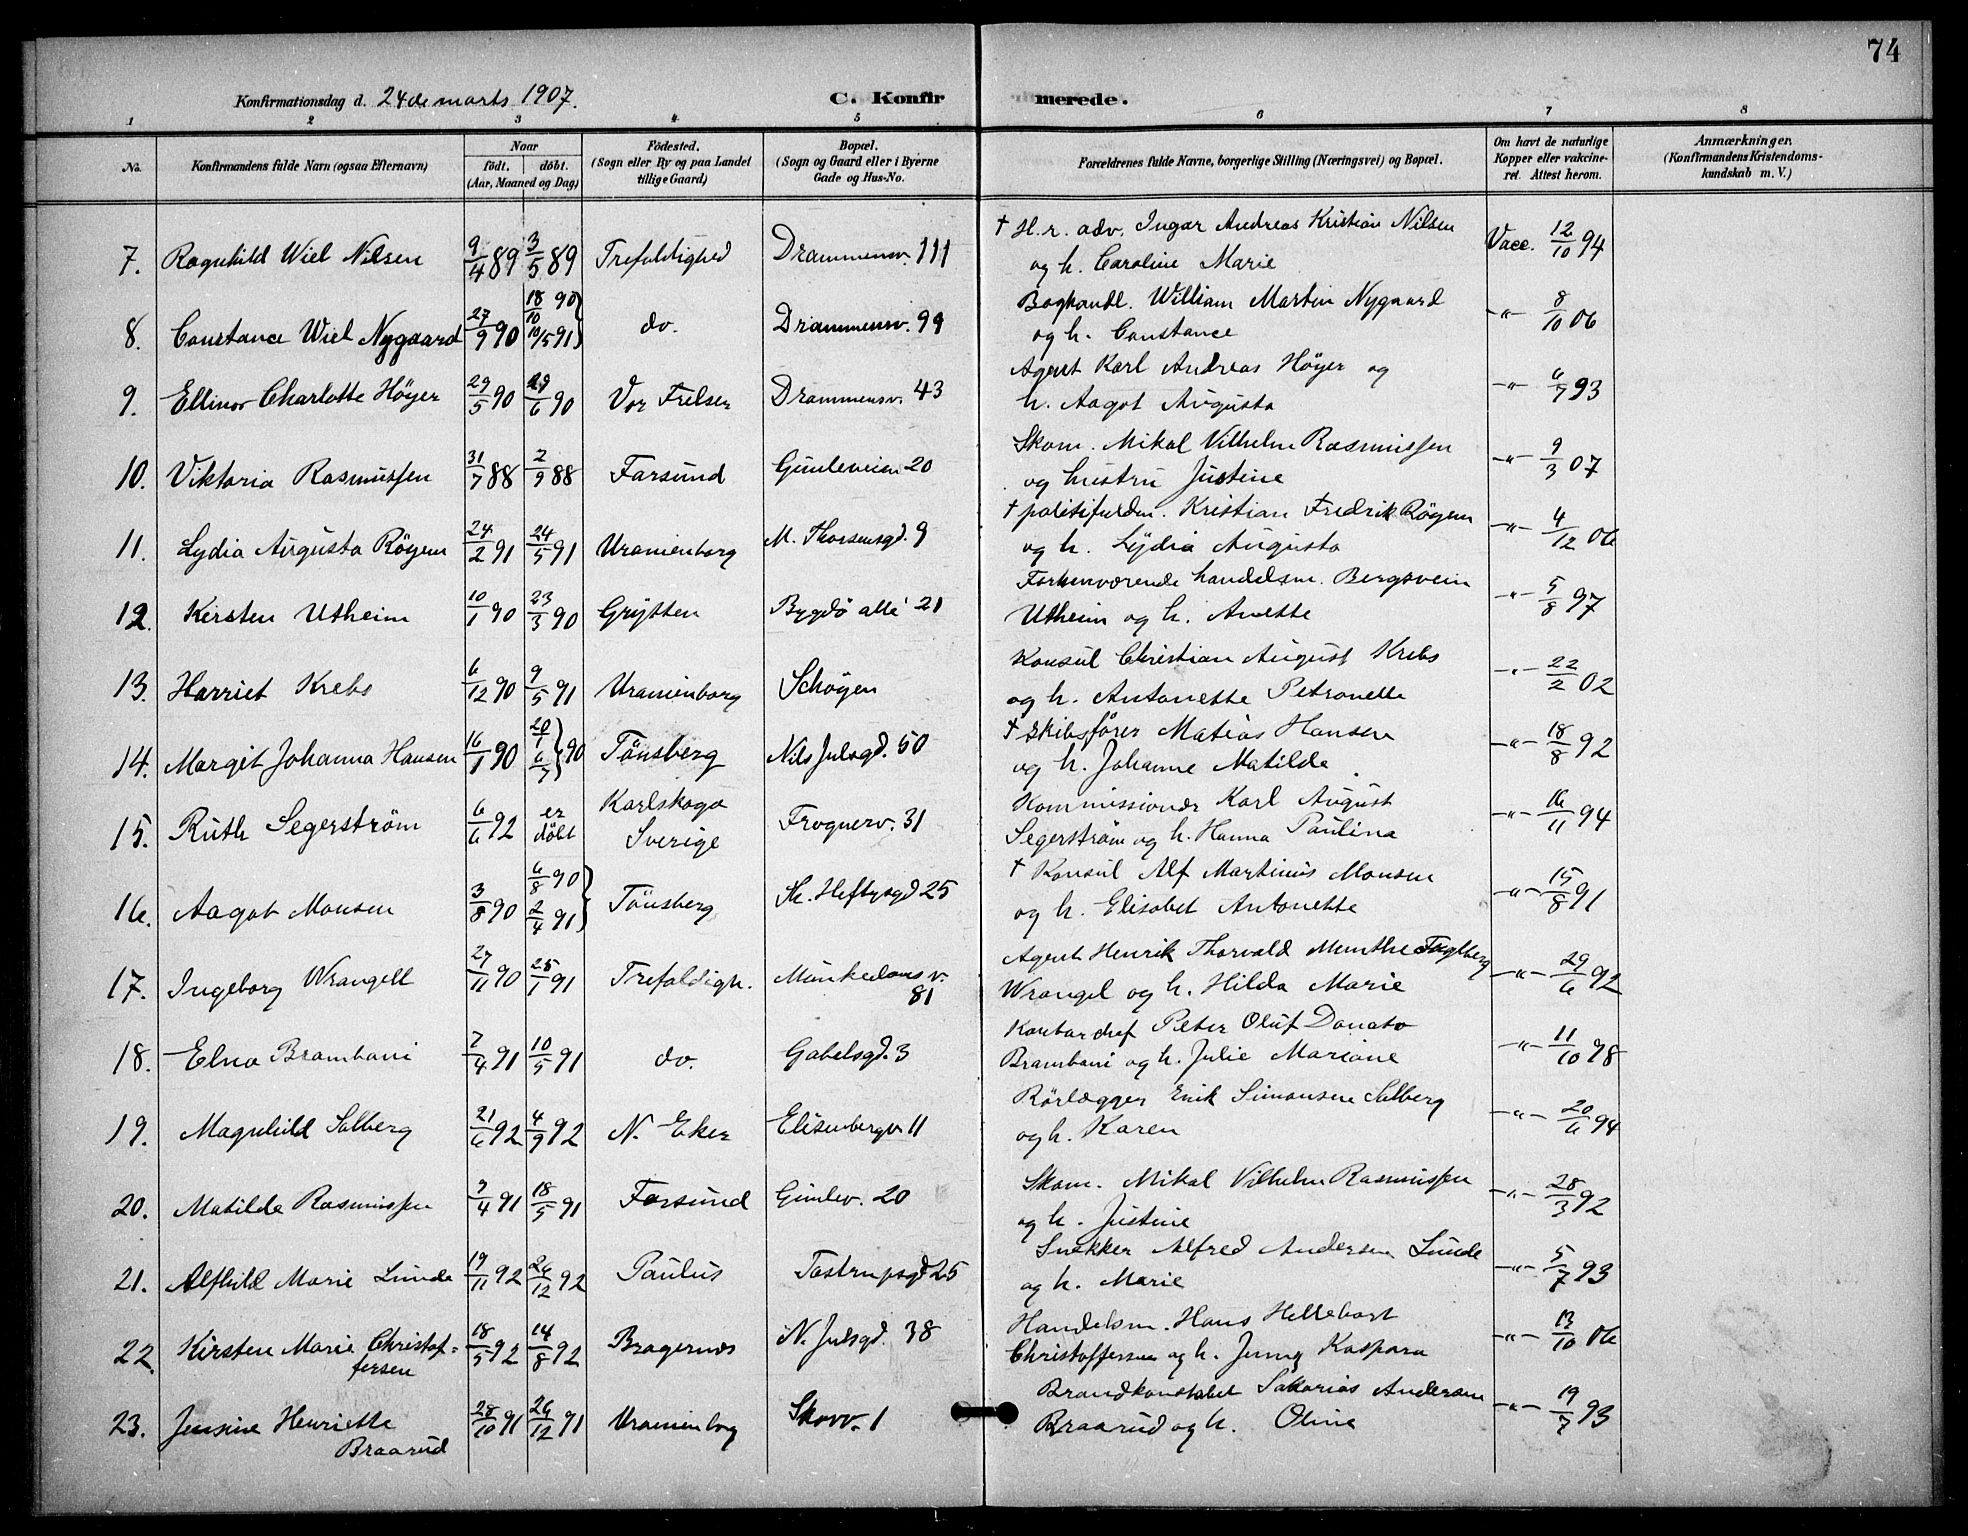 74
Konfirmationsdag d. 24de marts 1907.
C. Konfirmerede.
1 2 3 4 5 6 7 8
No.
Konfirmandens fulde Navn (ogsaa Efternavn)
Naar
født, døbt.
(Aar, Maaned og Dag)
Födested.
(Sogn eller By og paa Landet
tillige Gaard)
Bopæl.
(Sogn og Gaard eller i Byerne
Gade og Hus-No.
Forældrenes fulde Navne, borgerlige Stilling (Næringsvei) og Bopæl.
Om havt de naturlige
Kopper eller vakcine-
ret. Attest herom.
Anmærkninger.
(Konfirmandens Kristendoms-
kundskab m. V.)
† H. r. adv. Ingar Andreas Kristian Nilsen
7. Ragnhild Wiel Nilsen 9/4 89 3/5 89 Trefoldighed Drammensv. 111 Vacc. 12/10 94
og h. Caroline Marie
18/10 90 Boghandl. William Martin Nygaard
8. Constance Wiel Nygaard 27/9 90 10/5 91 do. Drammensv. 99 -"- 8/10 06
og h. Constance
Agent Karl Andreas Höyer og
9. Ellinor Charlotte Höyer 29/5 90 29/6 90 Vor Frelser Drammensv. 43 -"- 6/7 93
h. Aagot Augusta
Skom. Mikal Vilhelm Rasmussen
10. Viktoria Rasmussen 31/7 88 2/9 88 Farsund Gimleveien 20 -"- 9/3 07
og hustru Justine
† politifuldm. Kristian Fredrik Röyem
11. Lydia Augusta Röyem 24/2 91 24/5 91 Uranienborg M. Thorsensgd. 9 -"- 4/12 06
og h. Lydia Augusta
Forhenværende handelsm. Bergsvein
12. Kirsten Utheim 10/1 90 23/3 90 Grytten Bygdö allé 21 -"- 5/8 97
Utheim og h. Anette
Konsul Christian August Krebs
13. Harriet Krebs 6/12 90 9/5 91 Uranienborg Schögen -"- 22/2 02
og h. Antonette Petronelle
† Skibsfører Matias Hansen
14. Margit Johanna Hansen 16/1 90 20/1 6/7 } 90 Tönsberg Nils Julsgd. 50 -"- 18/8 92
og h. Johanne Matilde
Karlskoga Kommissionær Karl August
15. Ruth Segerström 6/6 92 er döbt Sverige Frognerv. 31 -"- 16/11 94
Segerström og h. Hanna Paulina
6/8 90 † Konsul Alf Martinus Monsen
16. Aagot Monsen 3/8 90 2/4 91 Tönsberg Th. Heftysgd 25 -"- 15/8 91
og h. Elisabet Antonette
Agent Henrik Thorvald Munthe
17. Ingeborg Wrangell 27/11 90 25/1 91 Trefoldigh. Munkedamsv. 81 -"- 29/6 92
Wrangel og h. Hilda Marie
Kontorchef Peter Oluf Donato
18. Elna Brambani 2/4 91 10/5 91 do. Gabelsgd. 3 -"- 11/10 98
Brambani og h. Julie Mariane
Rørlægger Erik Simonsen Solberg
19. Magnhild Solberg 21/6 92 4/9 92 N. Eker Elisenbergv. 11 -"- 20/6 94
og h. Karen
Skom. Mikal Vilhelm Rasmussen
20. Matilde Rasmussen 7/4 91 18/5 91 Farsund Gimlev. 20 -"- 28/3 92
og h. Justine
Snekker Alfred Andersen Lunde
21. Alfhild Marie Lunde 19/11 92 26/12 92 Paulus Tostrupsgd 25 -"- 5/7 93
og h. Marie
Handelsm. Hans Hellebart
22. Kirsten Marie Christof= 18/5 92 14/8 92 Bragernæs N. Julsgd. 38 -"- 13/10 06
fersen Christoffersen og h. Jenny Kaspara
Brandkonstabel Sakarias Andersen
23. Jensine Henriette 28/10 91 26/12 91 Uranienborg Skovv. 1 -"- 19/7 93
Braarud Braarud og h. Oline